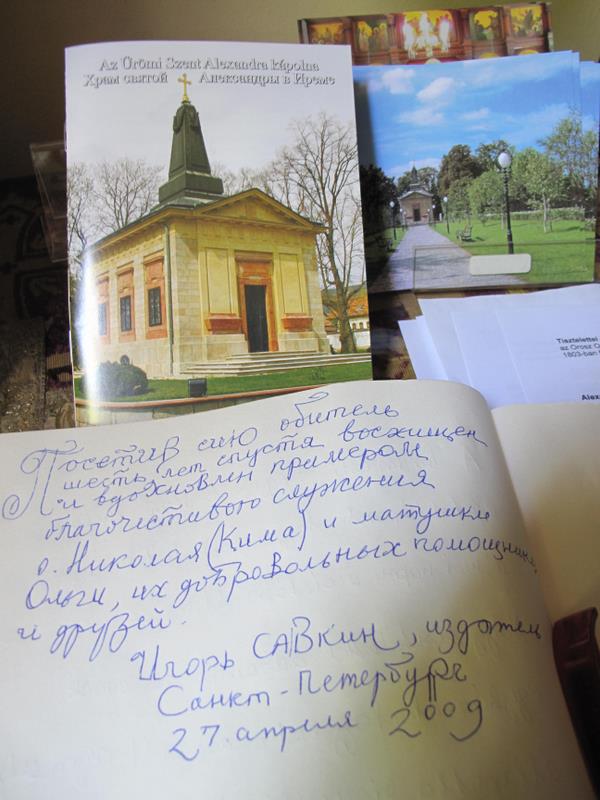 Az Ürömi Szent Alexandra kápolna
Храм святой Александры в Иреме
Tisztelettel
az Orosz O
1803-ban
Alex
Посетив сию обитель
шесть лет спустя восхищен
и вдохновлен примером
благочестивого служения
о. Николая (Кима) и матушки
Ольги, их добровольных помощников
и друзей.
Игорь САВКИН, издатель
Санкт-Петербург
27 апреля 2009